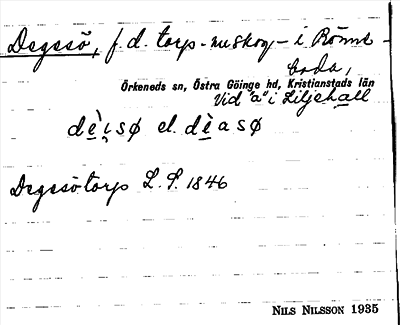 Degesö, f.d. torp - nu skog - i Rönne-
boda,
Örkeneds sn, Östra Göinge hd, Kristianstads län
Vid "a" i Liljehall
dèi̯sø el. dèasø
Degesötorp L.S. 1846
NILS NILSSON 1935